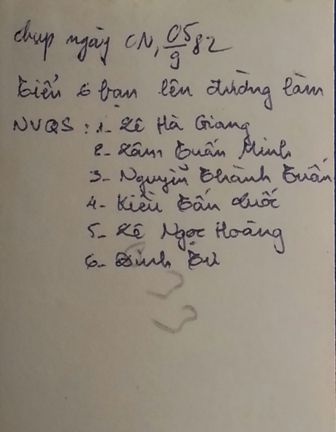 chụp ngày CN, 05/9 82
Tiễn 6 bạn lên đường làm
NVQS: 1- Lê Hà Giang
2- Lâm Tuấn Minh
3- Nguyễn Thành Tuấn
4- Kiều Tấn Quốc
5- Lê Ngọc Hoàng
6- Đinh Tư